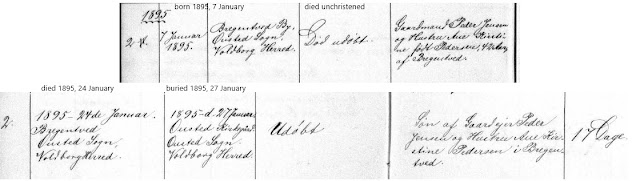 born 1895, 7 January
died unchristened
1895
2. 7 Januar
1895.
Bregentved By,
Onsted Sogn,
Voldborg Herred.
Død udøbt.
Gaardmand Peder Jensen
og Hustru Ane Kirsti-
ne født Pedersen, 42 Aar,
af Bregentved.
died 1895, 24 January
buried 1895, 27 January
2.
1895 - 24de Januar.
Bregentved
Onsted Sogn,
Voldborg Herred.
1895 - d. 27 Januar
Onsted Kirkegaard
Onsted Sogn,
Voldborg Herred.
Udøbt
Søn af Gaardejer Peder
Jensen og Hustru Ane Kir-
stine Pedersen i Bregen-
tved.
17 Dage.